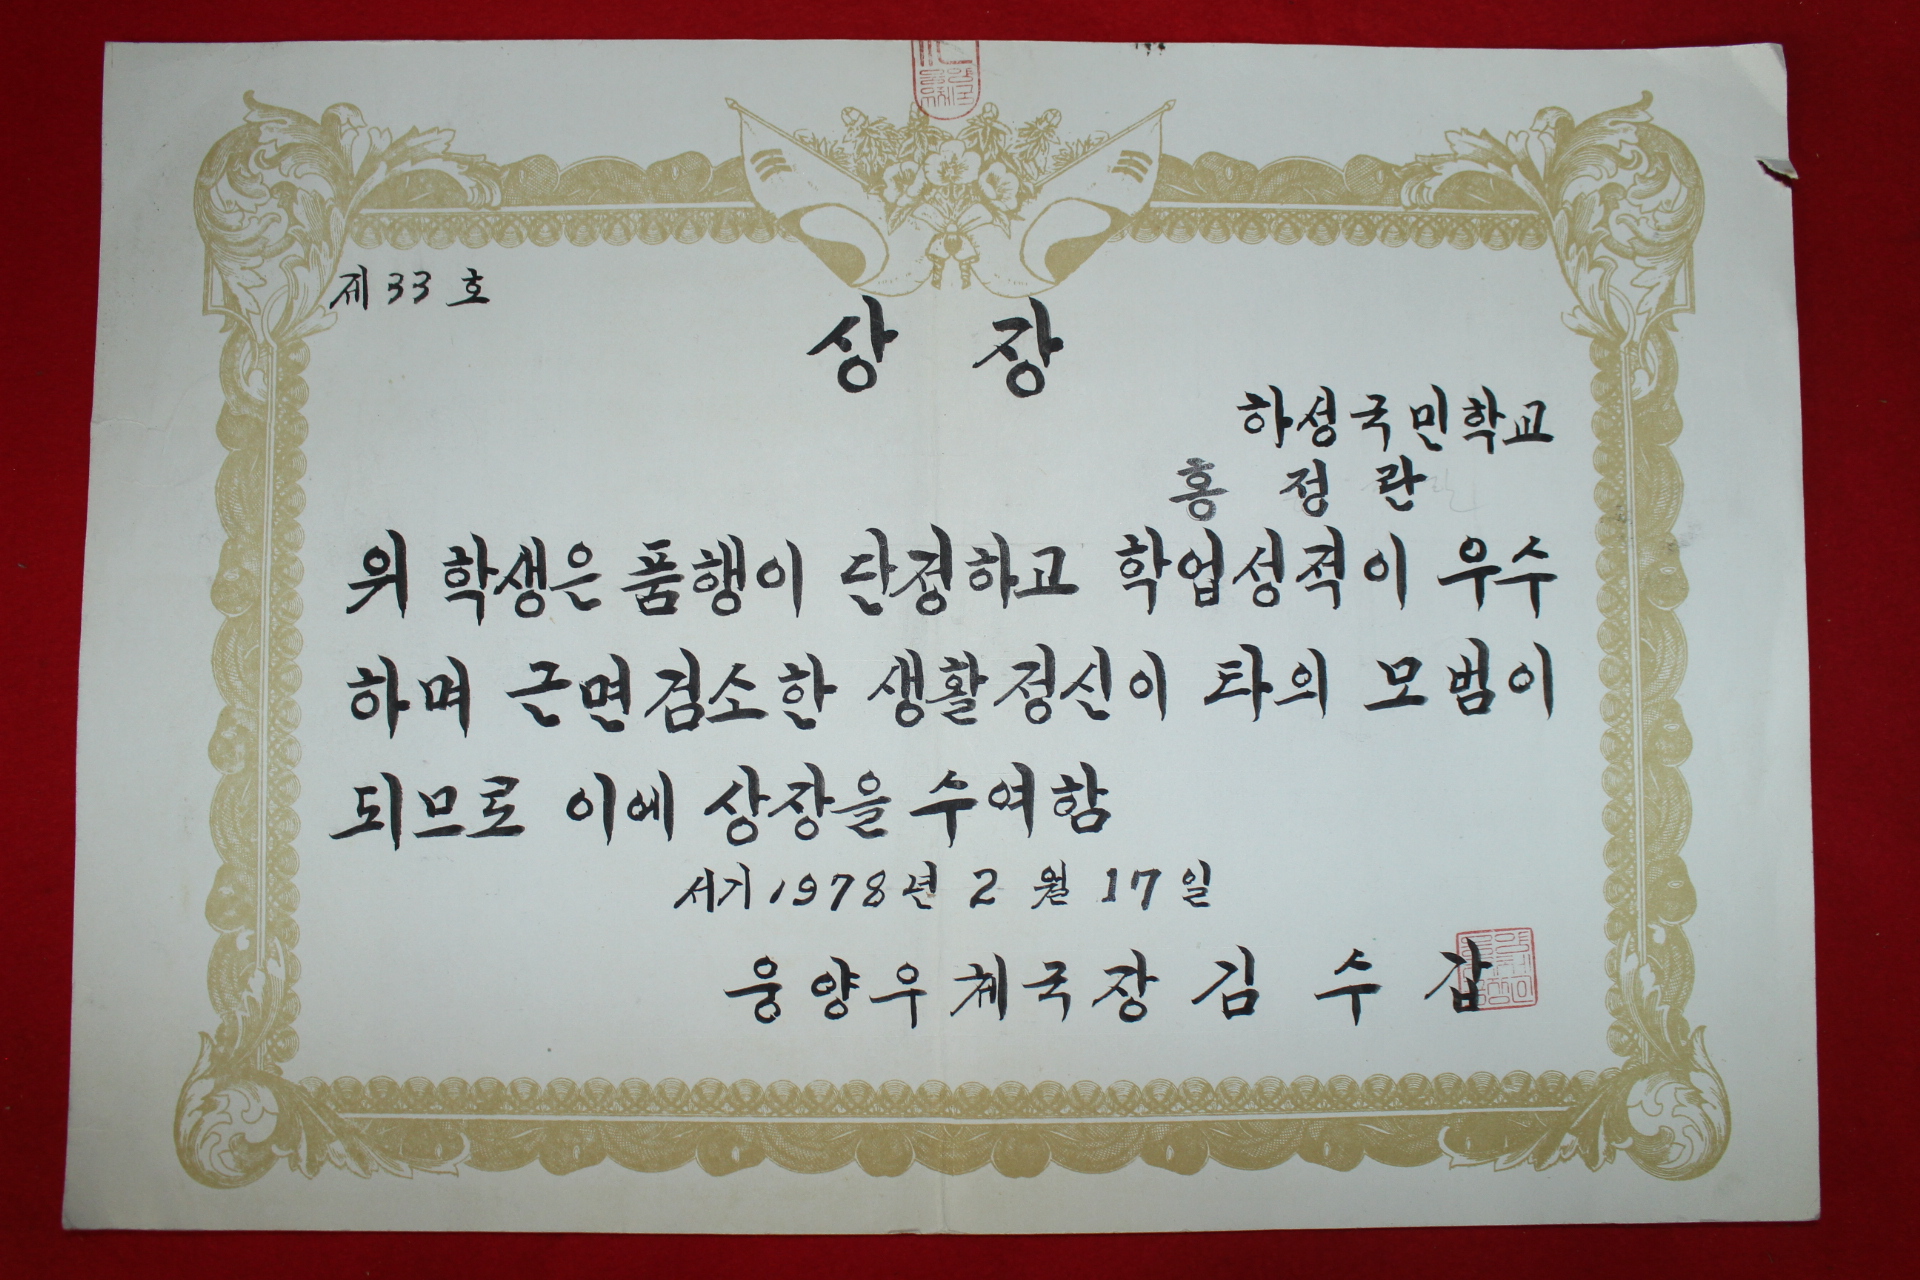 제 33 호
상 장
하성국민학교
홍 정 란
위 학생은 품행이 단정하고 학업성적이 우수
하며 근면검소한 생활정신이 타의 모범이
되므로 이에 상장을 수여함
서기 1978년 2 월 17일
웅양우체국장 김 수 갑